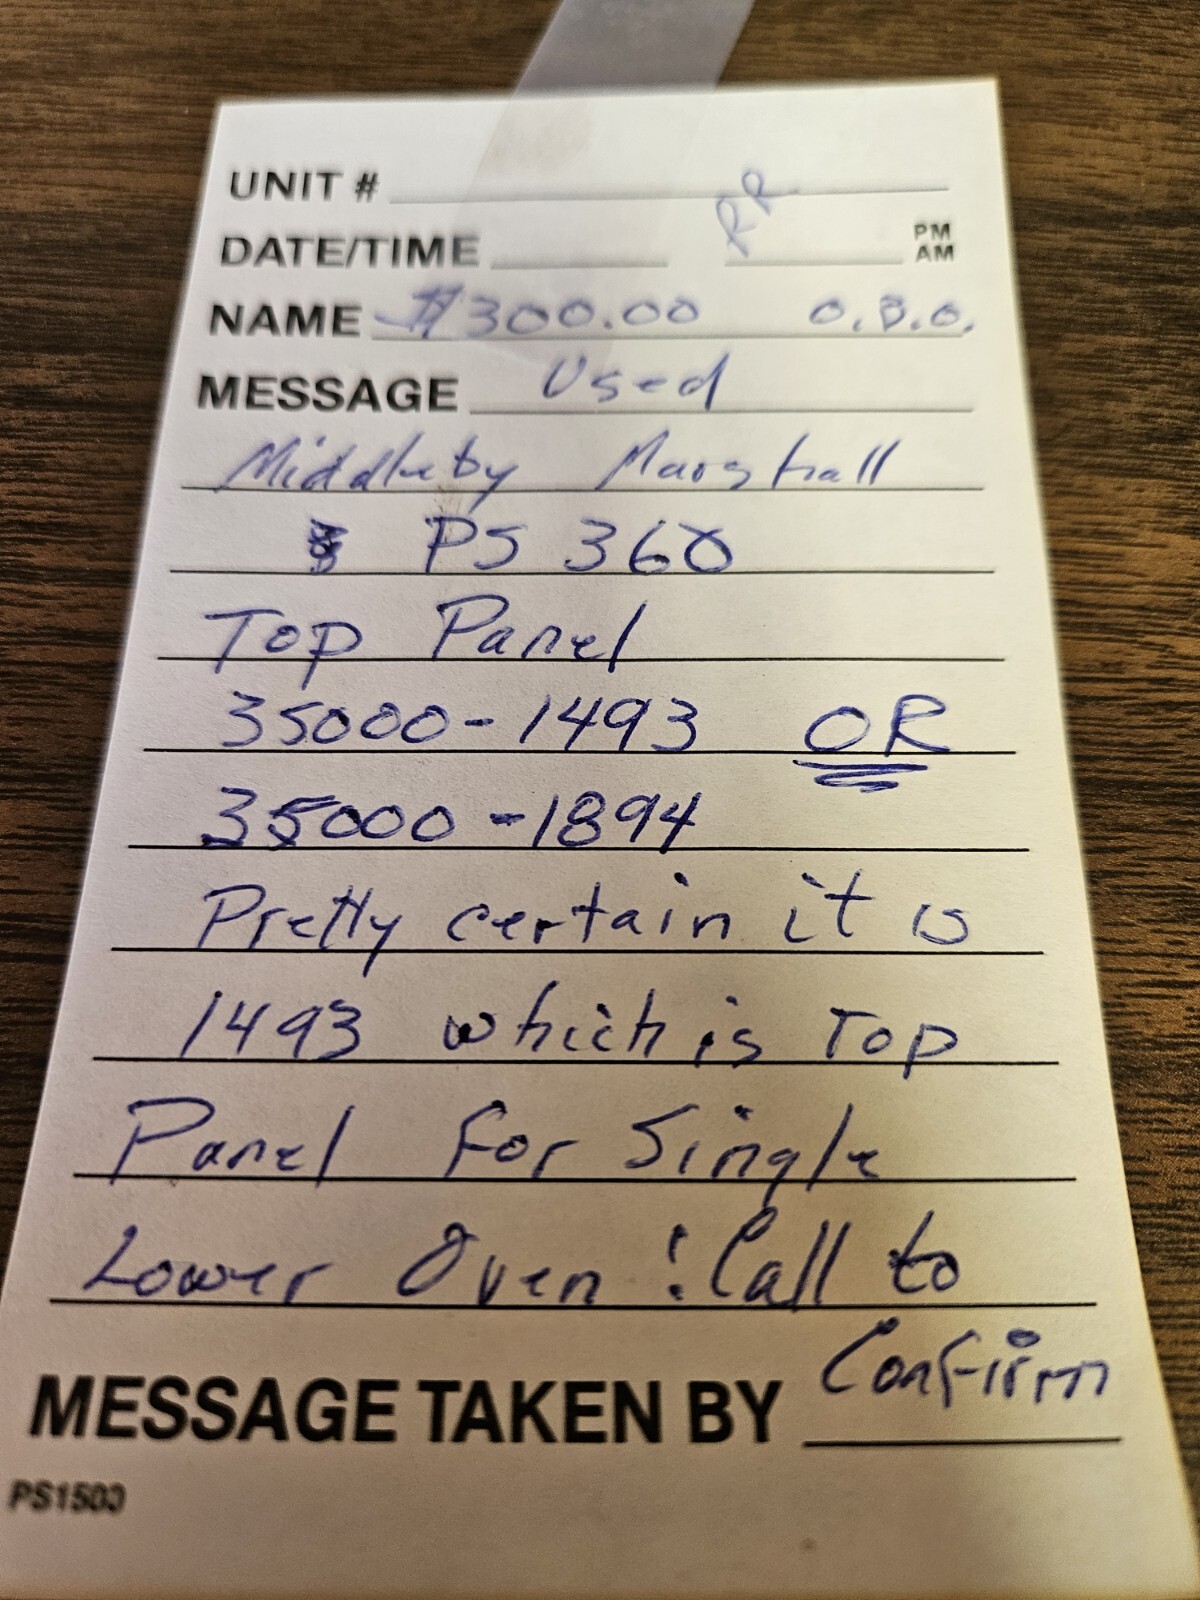 UNIT #
RR
DATE/TIME PM AM
NAME $300.00 O.B.O.
MESSAGE Used
Middleby Marshall
PS 360
Top Panel
35000-1493 OR
35000-1894
Pretty certain it is
1493 which is Top
Panel For Single
Lower Oven! Call to
Confirm
MESSAGE TAKEN BY
PS1500